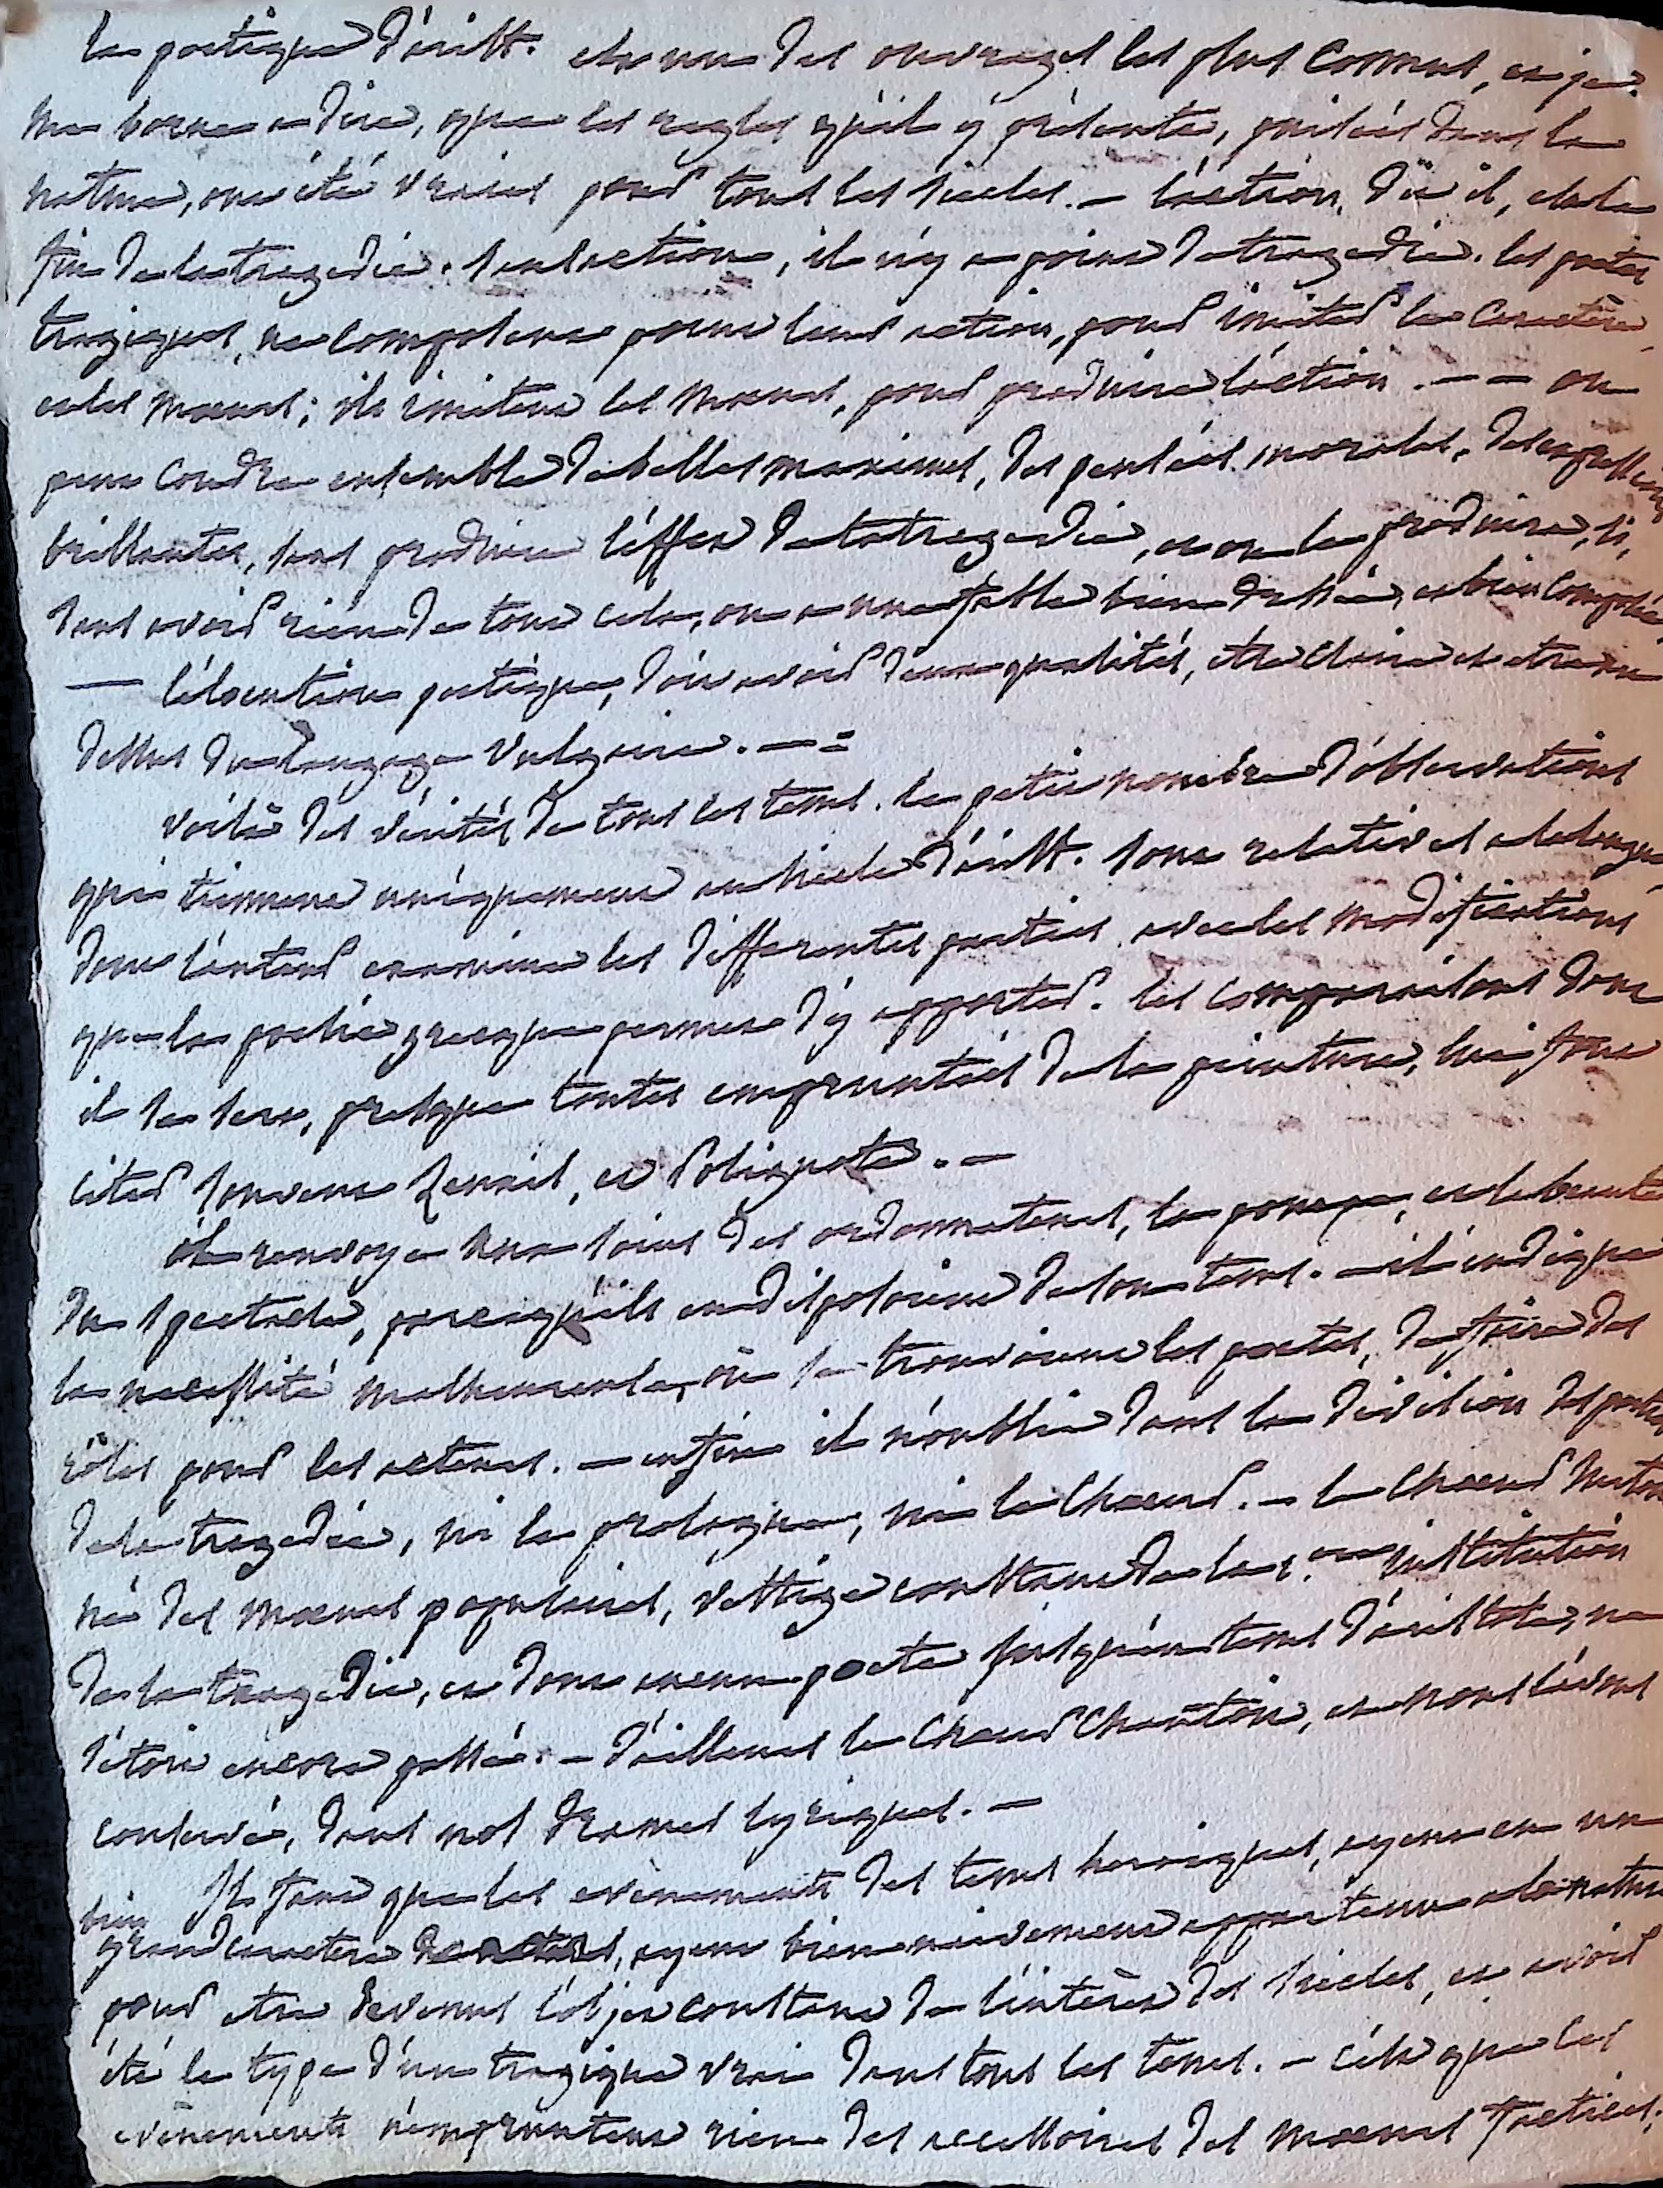 la poetique d'arist. est un des ouvrages les plus connus, et je
me borne a dire, que les regles qu'il y présente, puisées dans la
nature, ont été vraies pour tous les siecles. — l'action, dit il, est la
fin de la tragedie. sans action, il n'y a point de tragedie. les poetes
tragiques, ne composent point leur action, pour imiter le caractère
et les moeurs; ils imitent les moeurs, pour produire l'action. — — on
peut coudre ensemble de belles maximes, des pensées morales, des expressions
brillantes, sans produire l'effet de la tragedie, et on le produira, si,
sans avoir rien de tout cela, on a une fable bien dressée, et bien composée.
— l'élocution poetique, doit avoir deux qualités, etre claire et etre au
dessus du langage vulgaire. — =
voilà des vérités de tous les tems. le petit nombre d'observations
qui tiennent uniquement au siecle d'arist. sont relatives a la langue
dont l'auteur examine les differentes parties, avec les modifications
que la poesie grecque permet d'y apporter. les comparaisons dont
il se sert, presque toutes empruntées de la peinture, lui font
citer souvent Zeuxis, et Polignote. —
il renvoye aux soins des ordonnateurs, la pompe, et la beauté
du spectacle, parcequ'ils en disposoient de son tems. — il indique
la necessité malheureuse, où se trouvoient les poetes, de faire des
rôles pour les acteurs. — enfin il n'oublie dans la division des parties
de la tragedie, ni le prologue, ni le choeur. — le choeur
né des moeurs populaires, vestige constant de la 1.ere institution
de la tragedie, et dont aucun poete jusqu'au tems d'aristote, ne
s'étoit encore passé. — d'ailleurs le choeur chantoit, et nous l'avons
conservé, dans nos drames lyriques. —
Il faut que les evènements des tems heroiques, ayent eu un
bien
grand caractere, ayent bien naivement appartenu a la nature
pour etre devenus l'objet constant de l'intérêt des siecles, et avoir
été le type d'un tragique vrai dans tous les tems. — c'est que les
evènements n'empruntent rien des accessoires des moeurs factices;